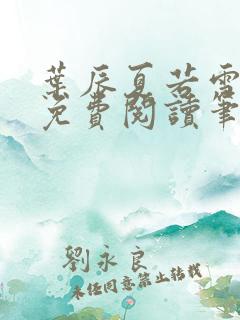 葉辰夏若雪
免費閱讀筆
劉永良
未經同意禁止轉載